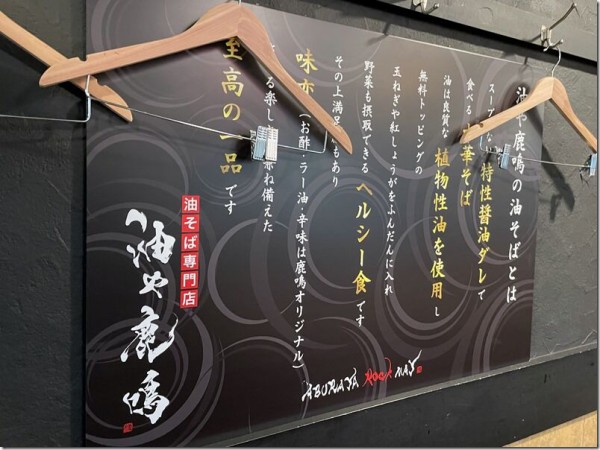 油や鹿鳴の油そばとは
スープ な 特性醤油ダレで
食べる 華そば
油は良質な植物性油を使用し
無料トッピングの
玉ねぎや紅しょうがをふんだんに入れ
野菜も摂取できるヘルシー食です
その上満足 もあり
味 (お酢・ラー油・辛味は鹿鳴オリジナル)
る楽し 兼ね備えた
至高の一品です
油そば専門店
油や鹿鳴
ABURAYA ROCK MAY